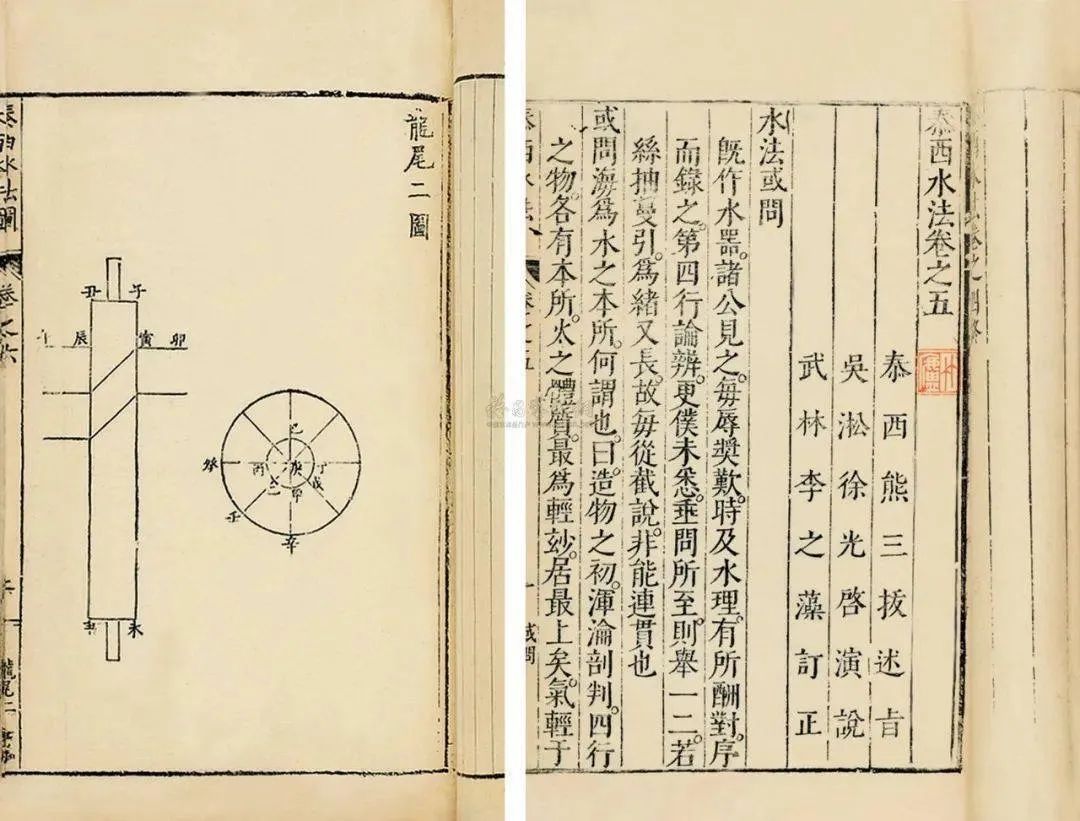 龍尾二圖
丑
午
辰
寅
卯
未
巳
丙
庚
丁
戊
甲
癸
壬
辛
龍尾二
泰西水法卷之五
泰西熊三拔述旨
吳淞徐光啓演說
武林李之藻訂正
水法或問
旣作水器。諸公見之。每辱奬歎。時及水理。有所酬對。序
而錄之。第四行論辨。更僕未悉。垂問所至。則舉一二。若
絲抽蔓引。爲緒又長。故每從截說。非能連貫也
或問海爲水之本所。何謂也。曰。造物之初。渾淪剖判。四行
之物。各有本所。火之體質。最爲輕玅。居最上矣。氣輕于
或問